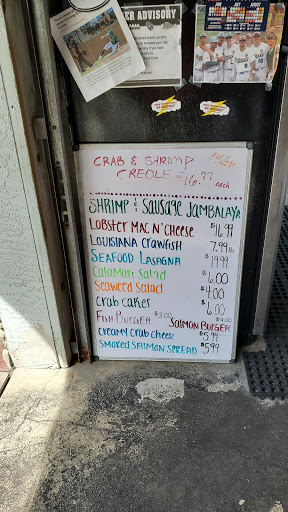 ER ADVISORY
CRAB & SHRIMP
CREOLE $16.99 each
SHRIMP & SAUSAGE JAMBALAYA
LOBSTER MAC N' CHEESE $16.99
LOUISIANA CRAWFISH 7.99 lb
SEAFOOD LASAGNA $19.99
CALAMARI SALAD $6.00
SEAWEED SALAD $4.00
CRAB CAKES $6.00
FISH BURGER $3.00 SALMON BURGER
CREAMY CRAB CHEESE $5.99
SMOKED SALMON SPREAD $5.99